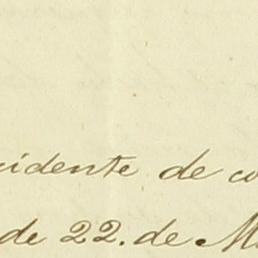 cidente de co
de 22. de M